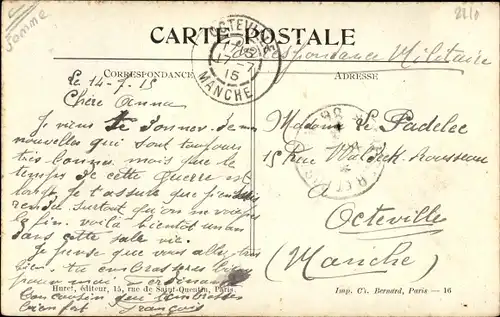 Somme
2210
CARTE POSTALE
OCTEVILLE
17-7
15
MANCHE
Correspondance Militaire
CORRESPONDANCE
ADRESSE
le 14-7-15
Chère Anna
Je viens te donner de mes
nouvelles qui sont toujours
très bonnes mais que le
temps de cette guerre est
long. Je t'assure que j'en suis
rendu surtout qu'on ne voit pas
la fin. voilà bientôt un an
dans cette sale vie.
Je pense que vous allez tous
bien. tu embrasseras bien
pour moi Ferdinand
ton cousin qui t'embrasse
bien fort François
Madame Le Padelec
15 Rue Waldeck-Rousseau
à
Octeville
(Manche)
Huret, éditeur, 15, rue de Saint-Quentin, Paris.
Imp. Ch. Bernard, Paris — 16